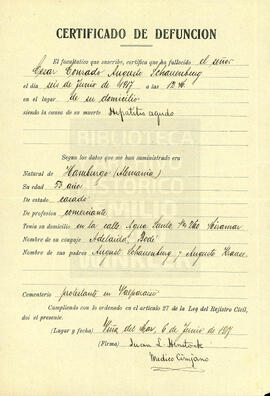 CERTIFICADO DE DEFUNCION
El facultativo que suscribe, certifica que ha fallecido el señor
Cesar Conrado Augusto Schauenburg
el día seis de Junio de 1917 a las 12 M.
en el lugar de su domicilio
siendo la causa de su muerte Hepatitis aguda
Segun los datos que me han suministrado era
Natural de Hamburgo (Alemania)
Su edad 53 años
De estado casado
De profesion comerciante
Tenia su domicilio en la calle Agua Santa Miramar
Nombre de su conyuje Adelaida Bodé
Nombre de sus padres August Schauenburg y Augusta
Cementerio protestante en Valparaiso
Cumpliendo con lo ordenado en el artículo 27 de la Ley del Registro Civil,
doi el presente.
(Lugar y fecha) Viña del Mar, 6 de Junio de 1917
(Firma) Juan L.
Medico Cirujano